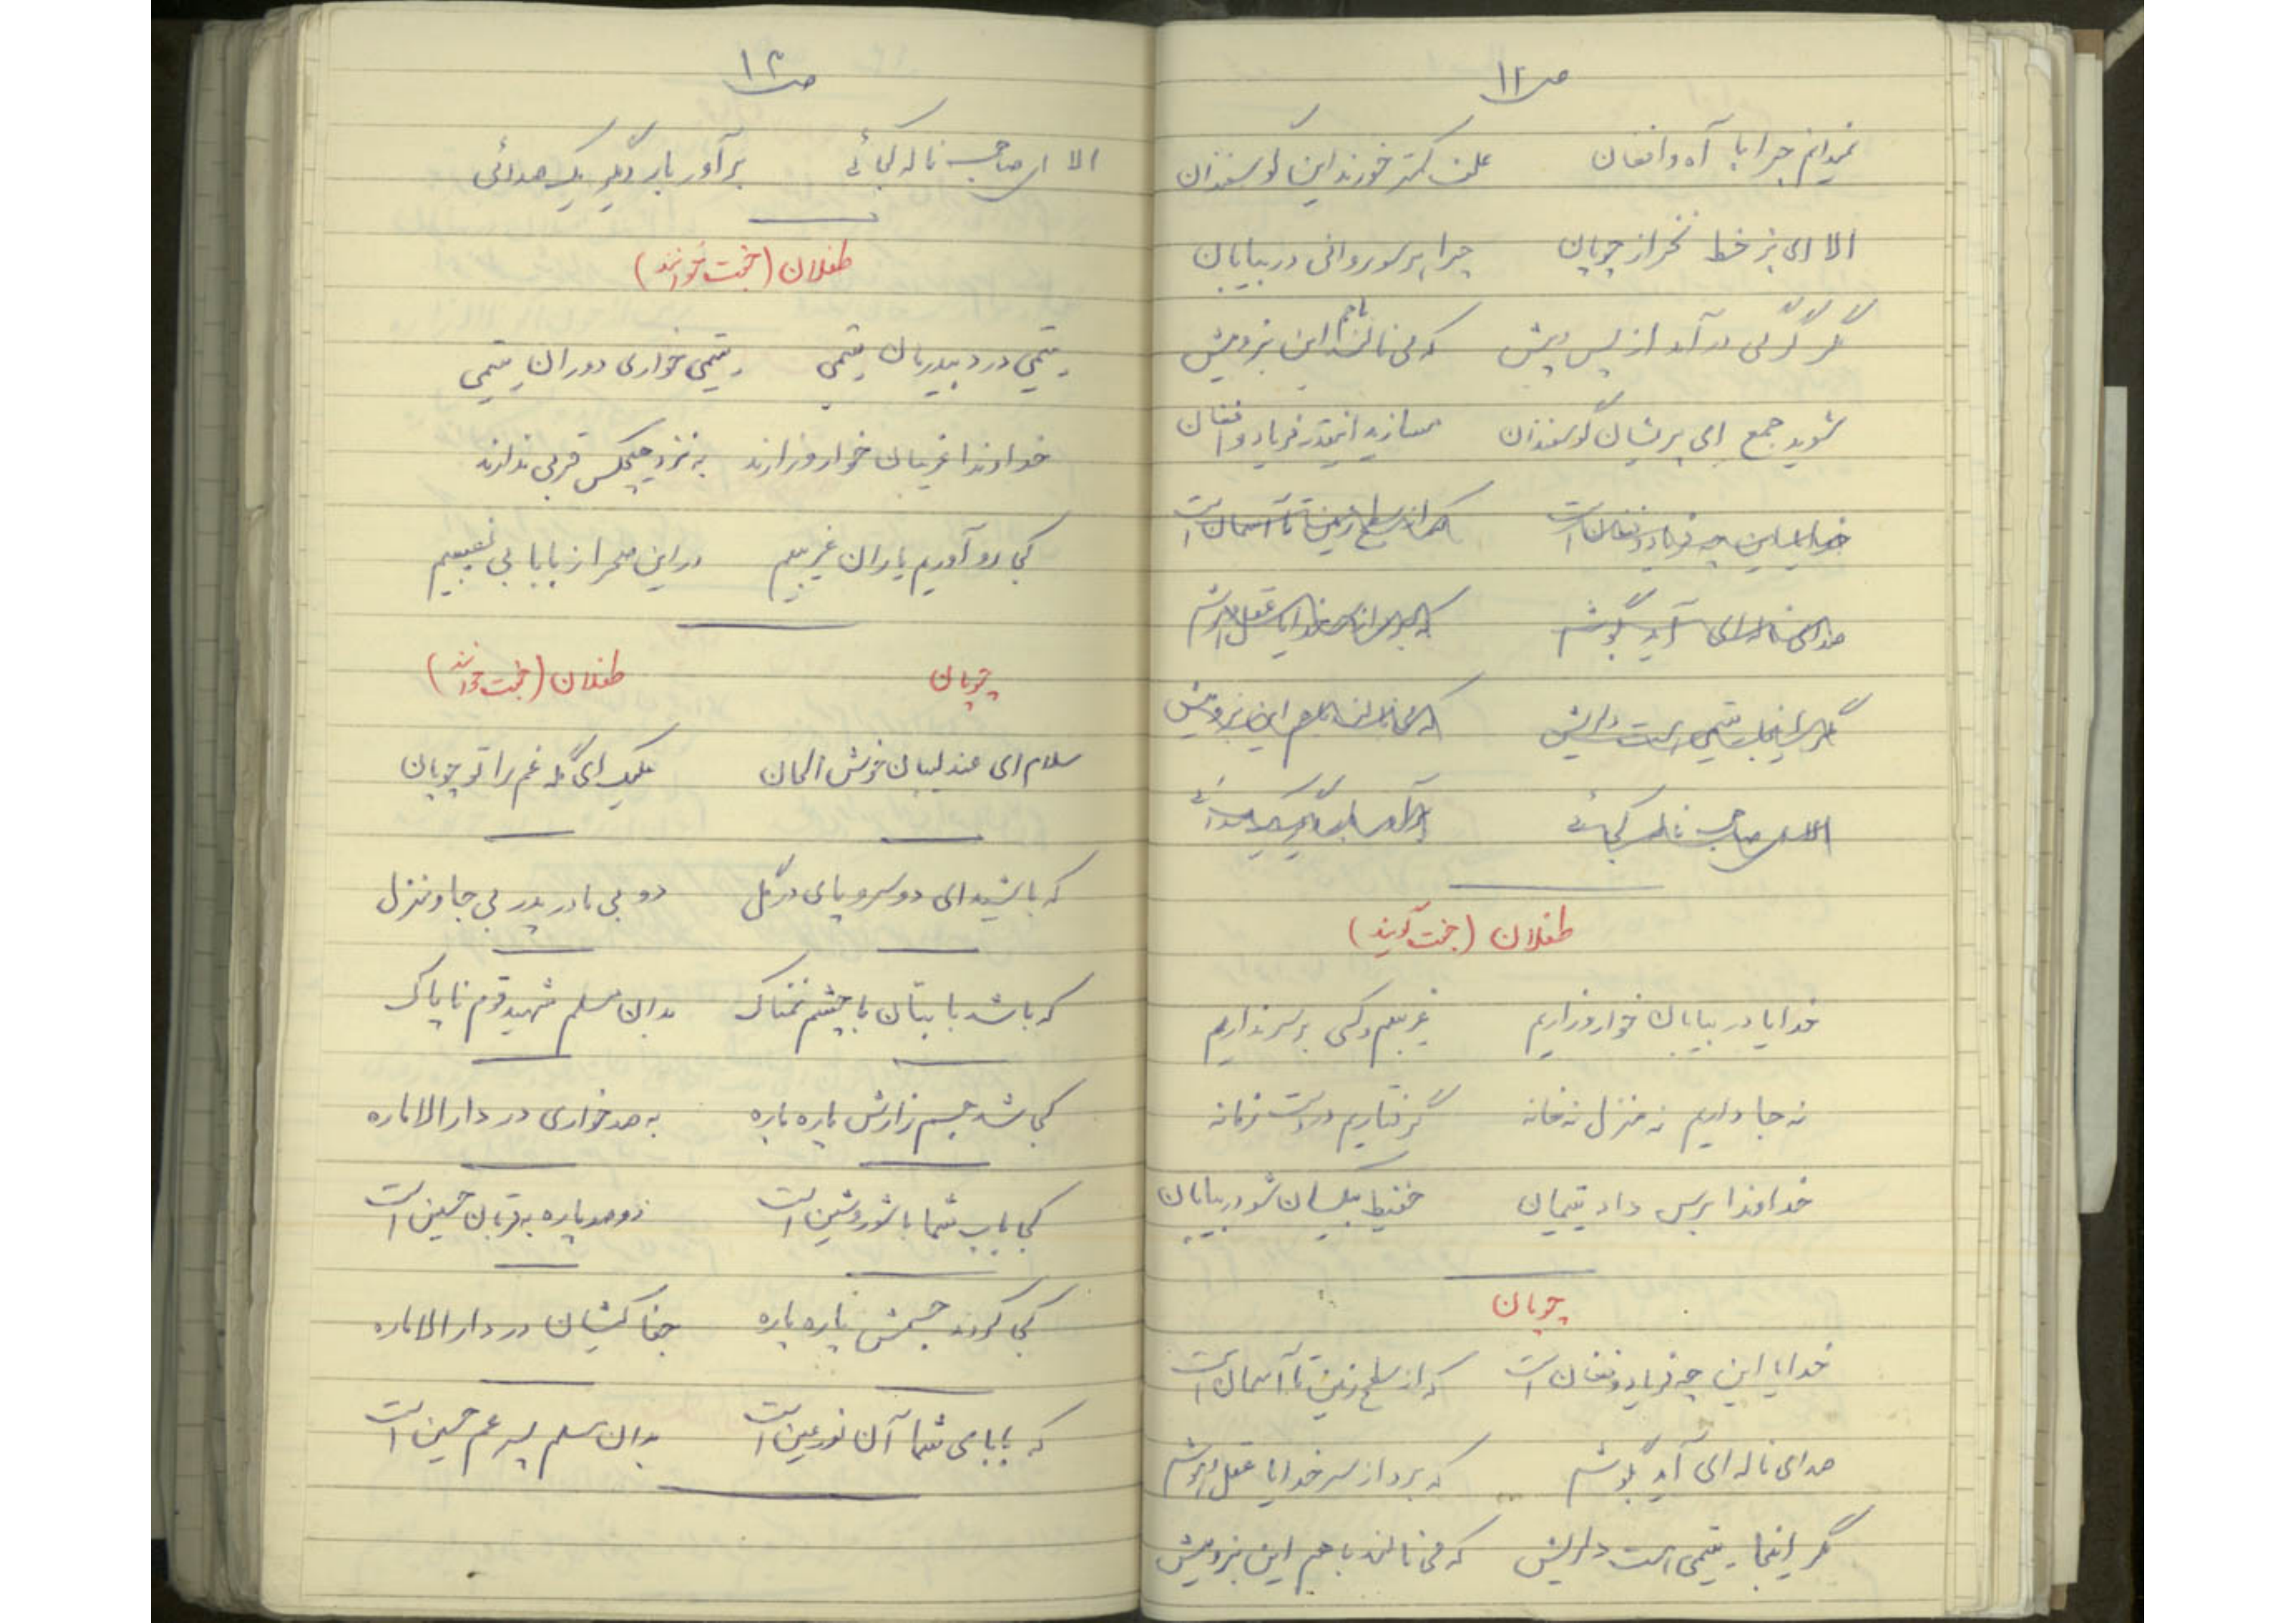 ص۱۱
نمیدانم چرا با آه و افغان علف کمتر خورند این گوسفندان
الا ای بز خط نخر از چوپان چرا هر سو روانی در بیابان
مگر گرگی درآمد از پس و پیش که می نالند باهم این بز و میش
شوید جمع ای پریشان گوسفندان مسازید اینقدر فریاد و افغان
خدایا این چه فریاد و فغان است که از سطح زمین تا آسمان است
صدای ناله ای آید بگوشم که برد از سر خدایا عقل و هوشم
مگر اینجا یتیمی هست دلریش که می نالند باهم این بز و میش
الا ای صاحب ناله کجائی برآور بار دیگر یک صدائی
طفلان (جفت گویند)
خدایا در بیابان خوار و زاریم غریبیم و کسی بر سر نداریم
نه جا داریم نه منزل نه خانه گرفتاریم در دست زمانه
خداوندا برس داد یتیمان حفیظ بیکسان شو در بیابان
چوپان
خدایا این چه فریاد و فغان است که از سطح زمین تا آسمان است
صدای ناله ای آید بگوشم که برد از سر خدایا عقل و هوشم
مگر اینجا یتیمی هست دلریش که می نالند باهم این بز و میش
ص۱۲
الا ای صاحب ناله کجائی برآور بار دیگر یک صدائی
طفلان (جفت خوانند)
یتیمی درد بیدرمان یتیمی یتیمی خواری دوران یتیمی
خداوندا غریبان خوار و زارند به نزد هیچکس قربی ندارند
کجا رو آوریم یاران غریبیم در این صحرا ز بابا بی نصیبیم
چوپان طفلان (جفت خوانند)
سلام ای عندلیبان خوش الحان علیک ای گله غم را تو چوپان
که باشید ای دو سرو پای در گل دو بی مادر پدر بی جا و منزل
که باشد بابتان با چشم نمناک بدان مسلم شهید قوم ناپاک
کجا شد جسم زارش پاره پاره به صد خواری در دارالاماره
کجا باب شما با شور و شین است دو صد پاره به قربان حسین است
کجا کردند جسمش پاره پاره جفا کیشان در دارالاماره
که بابای شما آن نور عین است بدان مسلم پسر عم حسین است